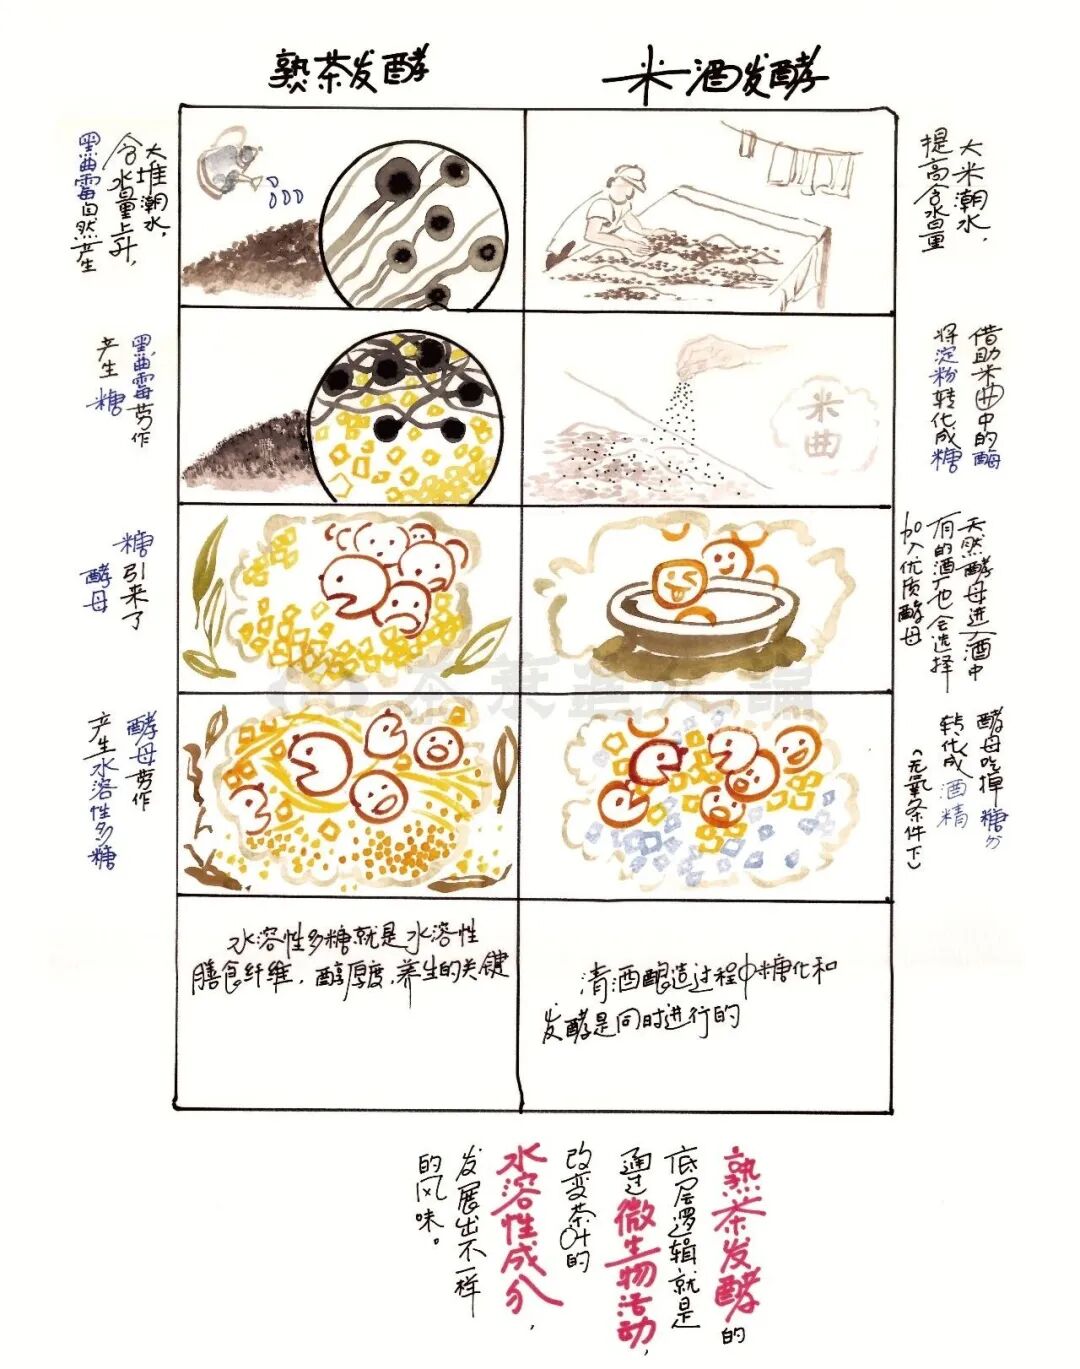 熟茶发酵
米酒发酵
大堆潮水,
含水量上升,
黑曲霉自然产生
大米潮水,
提高含水量
黑曲霉劳作
产生糖
借助米曲中的酶
将淀粉转化成糖
米
曲
糖引来了
酵母
天然酵母进入酒中
有的酒厂也会选择
加入优质酵母
酵母劳作
产生水溶性多糖
酵母吃掉糖分
转化成酒精
(无氧条件下)
水溶性多糖就是水溶性
膳食纤维,醇厚度,养生的关键
清酒酿造过程中糖化和
发酵是同时进行的
熟茶发酵的
底层逻辑就是
通过微生物活动,
改变茶叶的
水溶性成分,
发展出不一样
的风味。